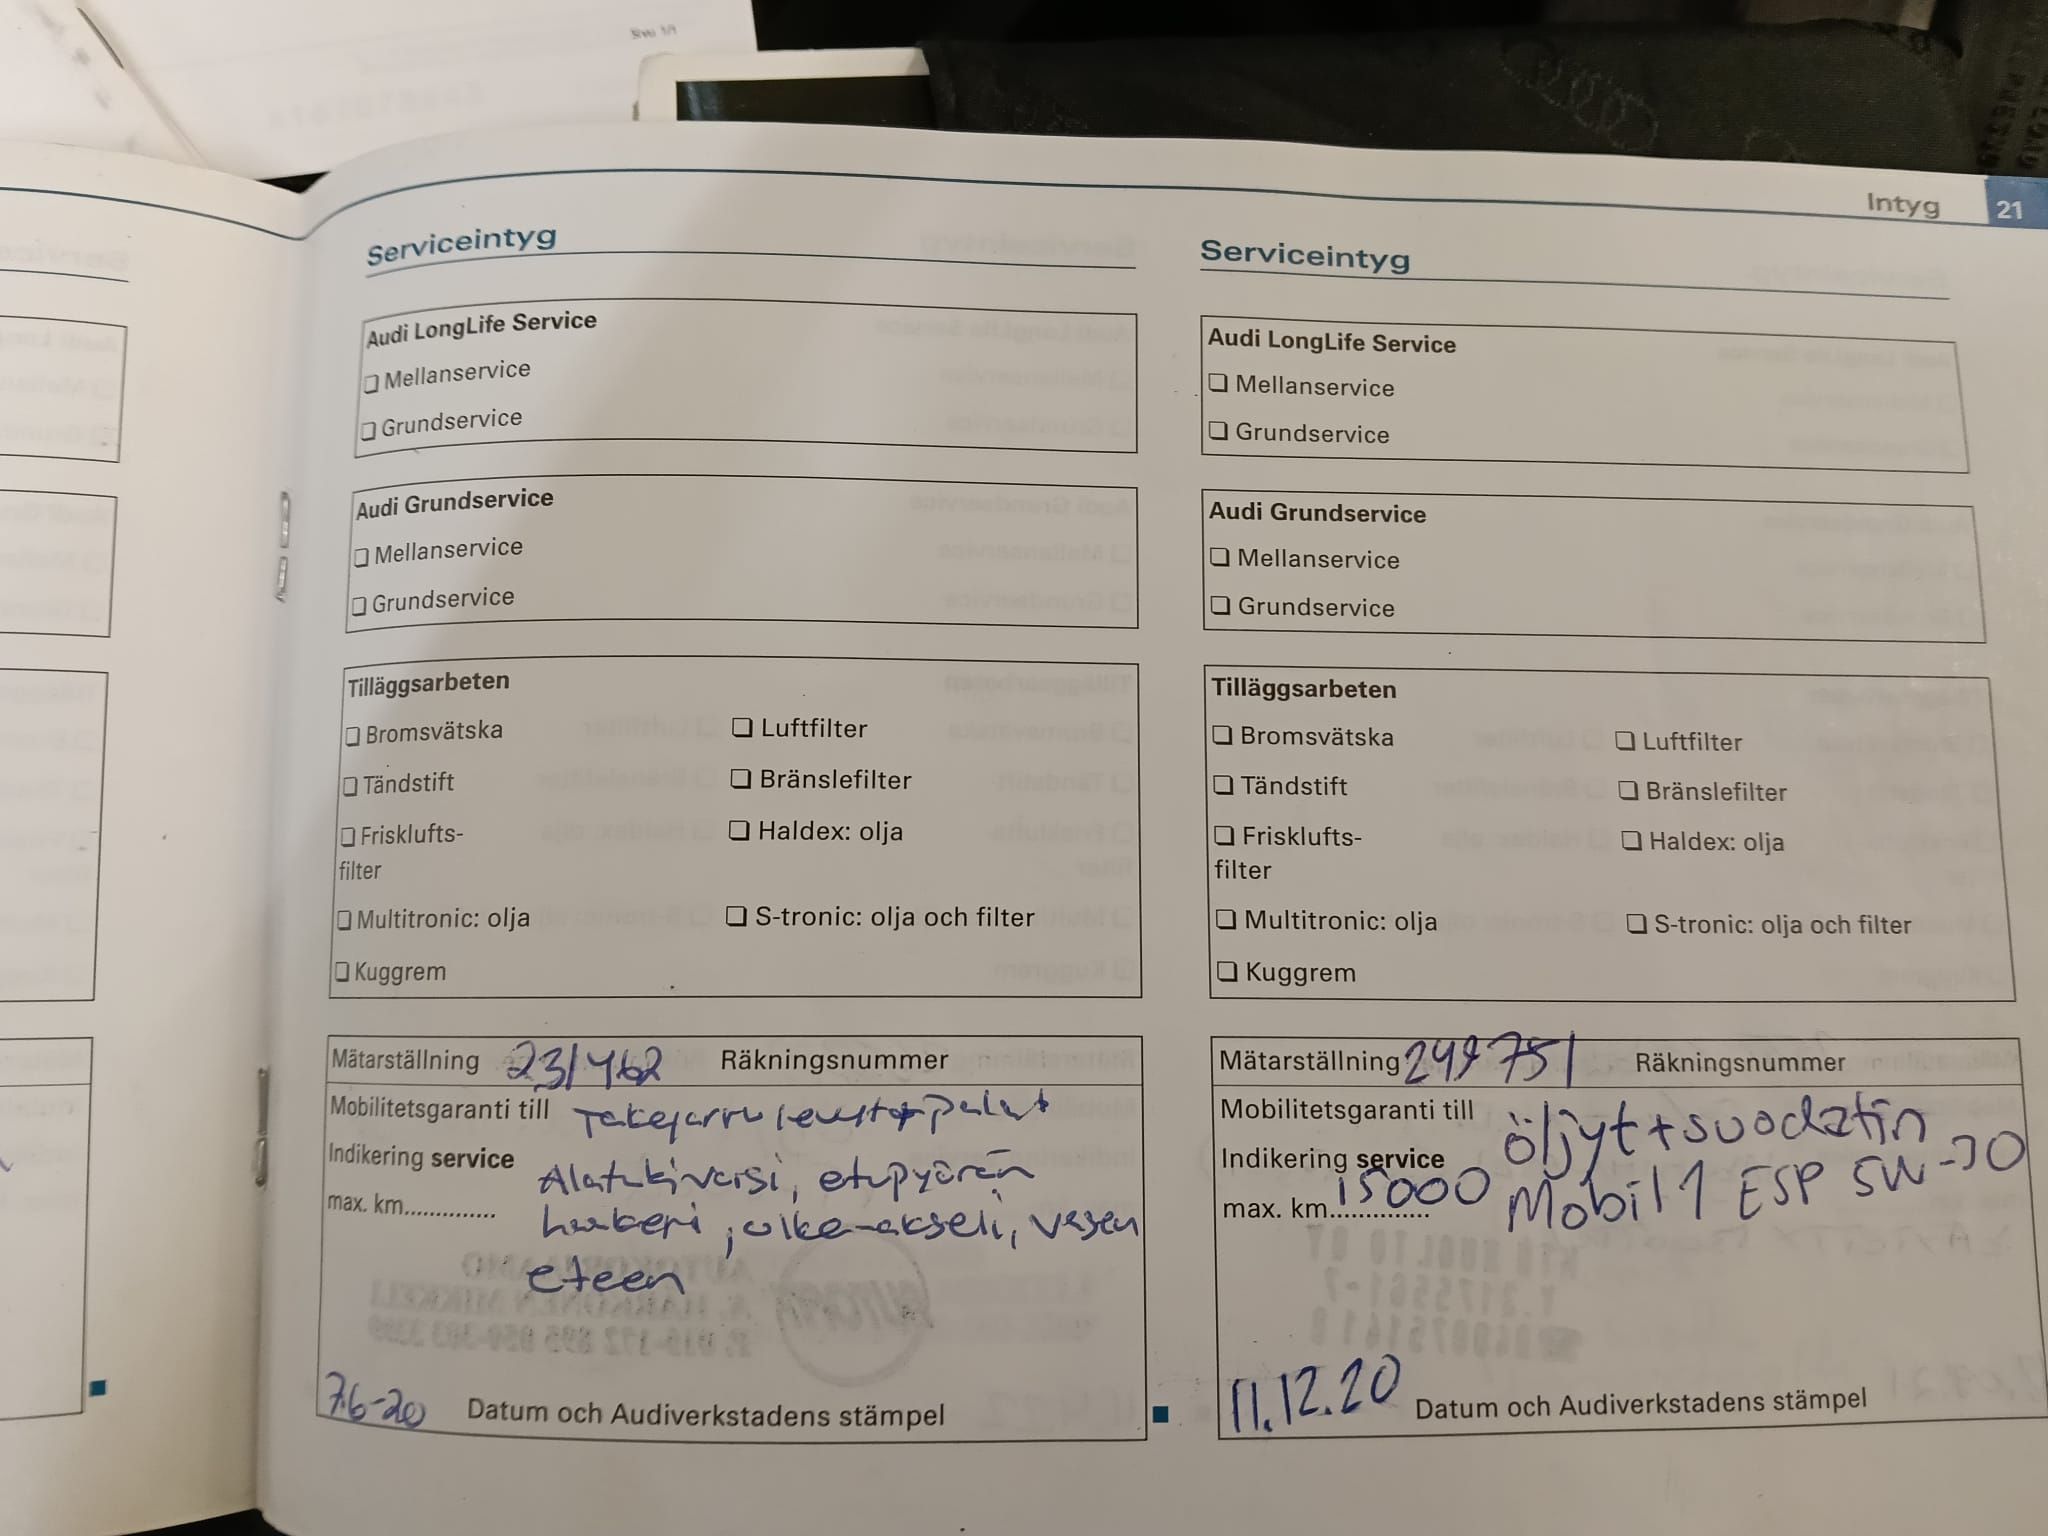 Sivu 1/1
Intyg 21
Serviceintyg
Audi LongLife Service
❏ Mellanservice
❏ Grundservice
Audi Grundservice
❏ Mellanservice
❏ Grundservice
Tilläggsarbeten
❏ Bromsvätska ❏ Luftfilter
❏ Tändstift ❏ Bränslefilter
❏ Frisklufts- ❏ Haldex: olja
filter
❏ Multitronic: olja ❏ S-tronic: olja och filter
❏ Kuggrem
Mätarställning 231462 Räkningsnummer
Mobilitetsgaranti till Takajarru levyt + palat
Indikering service Alatukivarsi, etupyörän
max. km.............. laakeri, ulko-akseli, vasen
eteen
7.6-20 Datum och Audiverkstadens stämpel
Serviceintyg
Audi LongLife Service
❏ Mellanservice
❏ Grundservice
Audi Grundservice
❏ Mellanservice
❏ Grundservice
Tilläggsarbeten
❏ Bromsvätska ❏ Luftfilter
❏ Tändstift ❏ Bränslefilter
❏ Frisklufts- ❏ Haldex: olja
filter
❏ Multitronic: olja ❏ S-tronic: olja och filter
❏ Kuggrem
Mätarställning 249751 Räkningsnummer
Mobilitetsgaranti till öljyt + suodatin
Indikering service
max. km 15000 Mobil 1 ESP 5W-30
11.12.20 Datum och Audiverkstadens stämpel